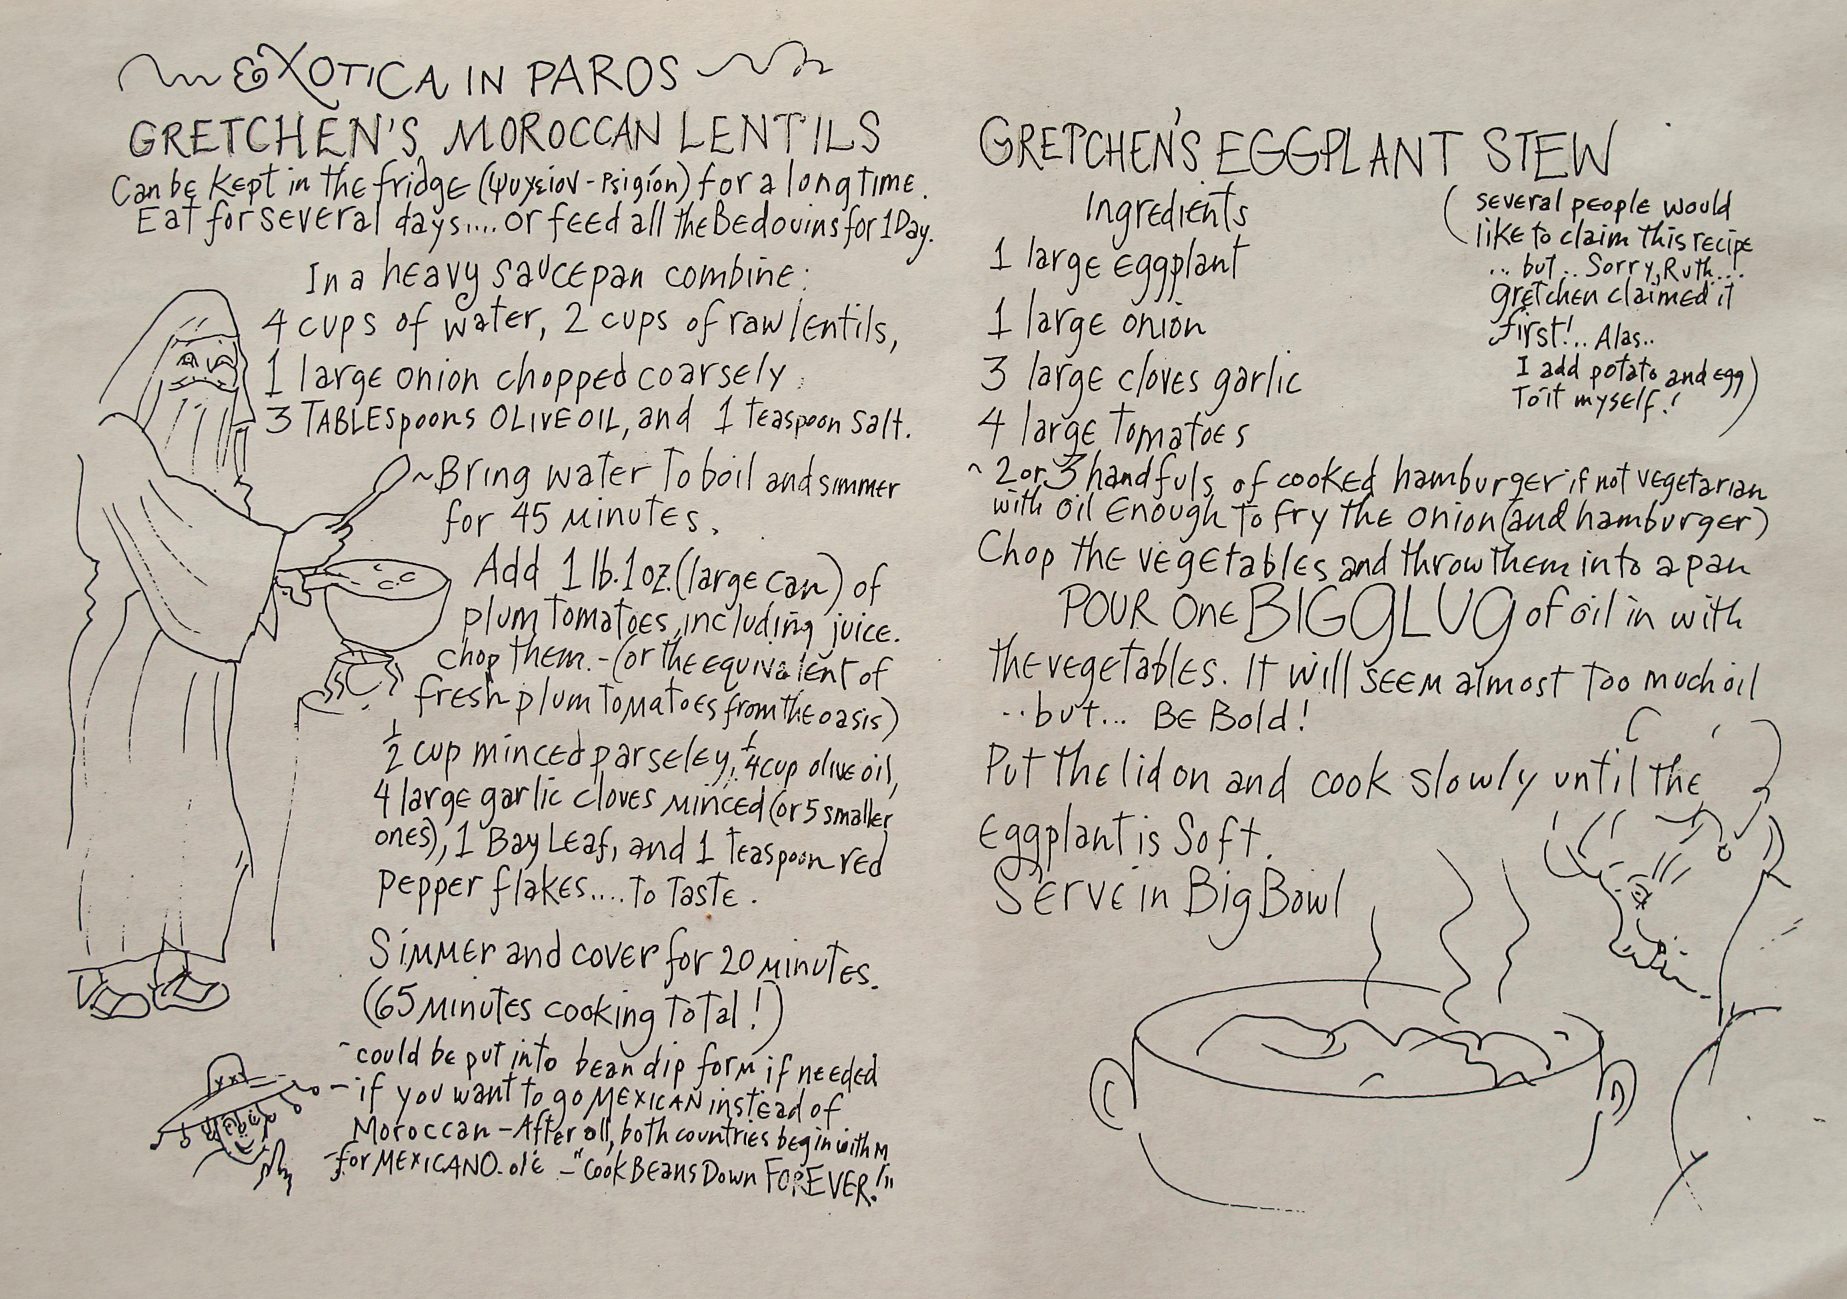 EXOTICA IN PAROS
GRETCHEN'S MOROCCAN LENTILS
Can be kept in the fridge (ψυγείον - Psigíon) for a long time.
Eat for several days.... or feed all the Bedouins for 1 Day.
In a heavy saucepan combine:
4 cups of water, 2 cups of raw lentils,
1 large onion chopped coarsely
3 TABLEspoons OLIVE OIL, and 1 teaspoon salt.
~Bring water to boil and simmer
for 45 minutes.
Add 1 lb. 1 oz. (large can) of
plum tomatoes, including juice.
chop them. - (or the equivalent of
fresh plum tomatoes from the oasis)
1/2 cup minced parseley, 1/4 cup olive oil,
4 large garlic cloves minced (or 5 smaller
ones), 1 Bay Leaf, and 1 teaspoon red
pepper flakes.... to taste.
Simmer and cover for 20 minutes.
(65 minutes cooking total!)
~could be put into bean dip form if needed
- if you want to go MEXICAN instead of
Moroccan - After all, both countries begin with M
-for MEXICANO. olé - "Cook Beans Down FOREVER!"
GRETCHEN'S EGGPLANT STEW
Ingredients
1 large eggplant
1 large onion
3 large cloves garlic
4 large tomatoes
(several people would
like to claim this recipe
... but.. Sorry, Ruth....
gretchen claimed it
first!.. Alas..
I add potato and egg
to it myself!)
~ 2 or 3 handfuls of cooked hamburger if not vegetarian
with oil enough to fry the onion (and hamburger)
Chop the vegetables and throw them into a pan
POUR One BIG GLUG of oil in with
the vegetables. It will seem almost too much oil
..but... Be Bold!
Put the lid on and cook slowly until the
Eggplant is Soft.
Serve in Big Bowl